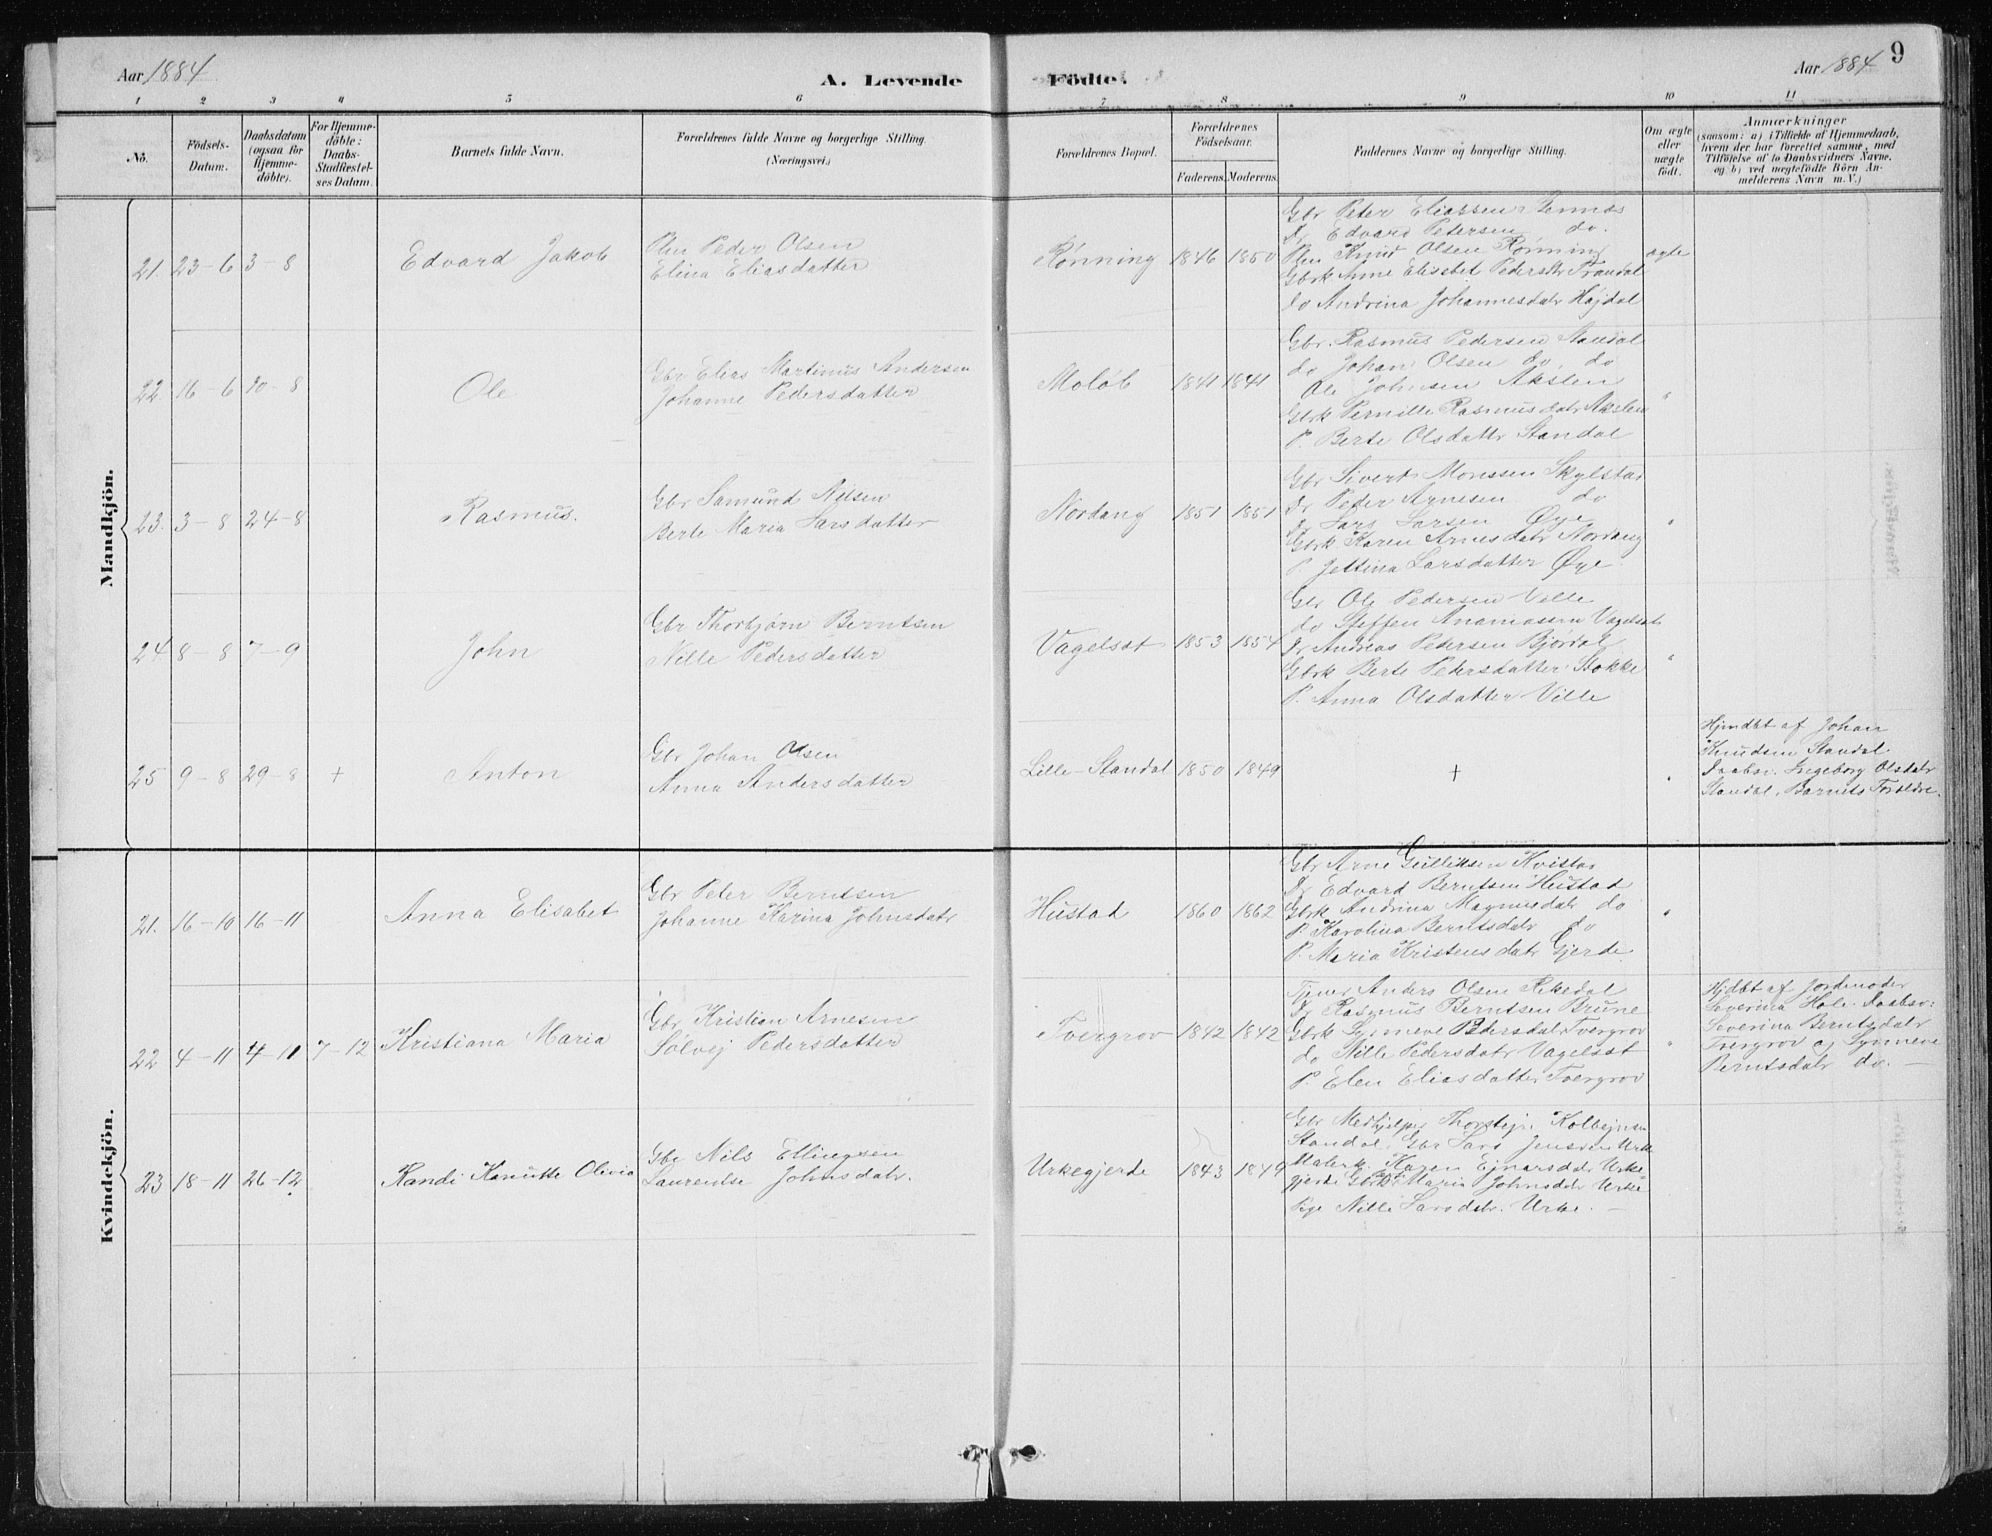 Aar 1884
A. Levende Födte.
Aar 1884
9
1 2 3 4 5 6 7 8 9 10 11
No.
Födsels-
Datum.
Daabsdatum
(ogsaa for
Hjemme-
döbte).
For Hjemme-
döbte:
Daabs-
Stadfæstel-
ses Datum.
Barnets fulde Navn.
Forældrenes fulde Navne og borgerlige Stilling.
(Næringsvei.)
Forældrenes Bopæl.
Forældrenes
Födselsaar.
Faderens.
Moderens.
Faddernes Navne og borgerlige Stilling.
Om ægte
eller
uægte
födt.
Anmærkninger
(saasom: a) i Tilfælde af Hjemmedaab,
hvem der har forrettet samme, med
Tilföielse af to Daabsvidners Navne.
og b) ved uægtefödte Börn An-
melderens Navn m. V.)
Mandkjön.
21. 23-6 3-8
Edvard Jakob
Peder Olsen
Elina Eliasdatter
Rønning 1846 1850
Gbr Peter Eliassen
Dr Edvard Petersen do.
Knud Olsen Rønning
Gbrk Anne Elisabet Pedersdtr Trandal
do Andrina Johannesdatr Højdal
ægte
22 16-6 10-8
Ole
Gbr Elias Martinus Andersen
Johanne Pedersdatter
Moløb 1841 1841
Gbr. Rasmus Pedersen Standal
do Johan Olsen do. do
Ole Johnsen Akslen
Gbrk Pernille Rasmusdatr Akslen
P. Berte Olsdattr Standal
"
23. 3-8 24-8
Rasmus.
Gbr Samund Nilsen
Berte Maria Larsdatter
Nordang 1851 1851
Gbr Sivert Monssen Skylstad
Dr Peder Arnesen do
Dr Lars Larsen Øye
Gbrk Karen Arnesdatr Nordang
P. Jettina Larsdatter Øye
"
24 8-8 7-9
John
Gbr Thorbjørn Berntsen
Nille Pedersdatter
Vagelsæt 1853 1854
Gbr Ole Pedersen Ville
do Steffen Ananiassen Vagelsæt
Dr Andreas Pedersen Bjørdal
Gbrk Berte Petersdatter Stokke
P. Anna Olsdatter Ville
"
25 9-8 29-8 +
Anton
Gbr Johan Olsen
Anna Andersdatter
Lille-Standal 1850 1849
+
"
Hjmdbt af Johan
Knudsen Standal.
Daabsv. Ingeborg Olsdatr
Standal, Barnets Forældre.
Kvindekjön.
21. 16-10 16-11
Anna Elisabet
Gbr Peter Berntsen
Johanne Karina Johnsdatr
Hustad 1860 1862
Gbr Arne Gulliksen Kvistad
Dr Edvard Berntsen Hustad
Gbrk Andrina Magnusdatr do
P. Karolina Berntsdatr do
P. Maria Kristensdatr Gjerde
"
22 4-11 4-11 7-12
Kristiana Maria
Gbr Kristian Arnesen
Sølvej Pedersdatter
Tvergrov 1842 1842
Tjener Anders Olsen Rekedal
Dr Rasmus Berntsen Brune
Gbrk Synneve Pedersdatr Tvergrov
do Nille Pedersdatr Vagelsæt
P. Elen Eliasdatter Tvergrov
"
Hjdbt af Jordemoder
Severina Hole. Daabsv:
Severina Berntsdatr
Tvergrov og Synneve
Berntsdatr do. —
23 18-11 26-12
Randi Knutte Olivia
Gbr Nils Ellingsen
Laurentse Johnsdatr.
Urkegjerde 1843 1849
Gbr Medhjelper Thorstejn Kolbejnsen
Standal, Gbr Lars Jenssen Urke
Karen Ejnarsdatr Urke
gjerde Gbrk Maria Johnsdatr Urke
Pige Nille Larsdatr. Urke. —